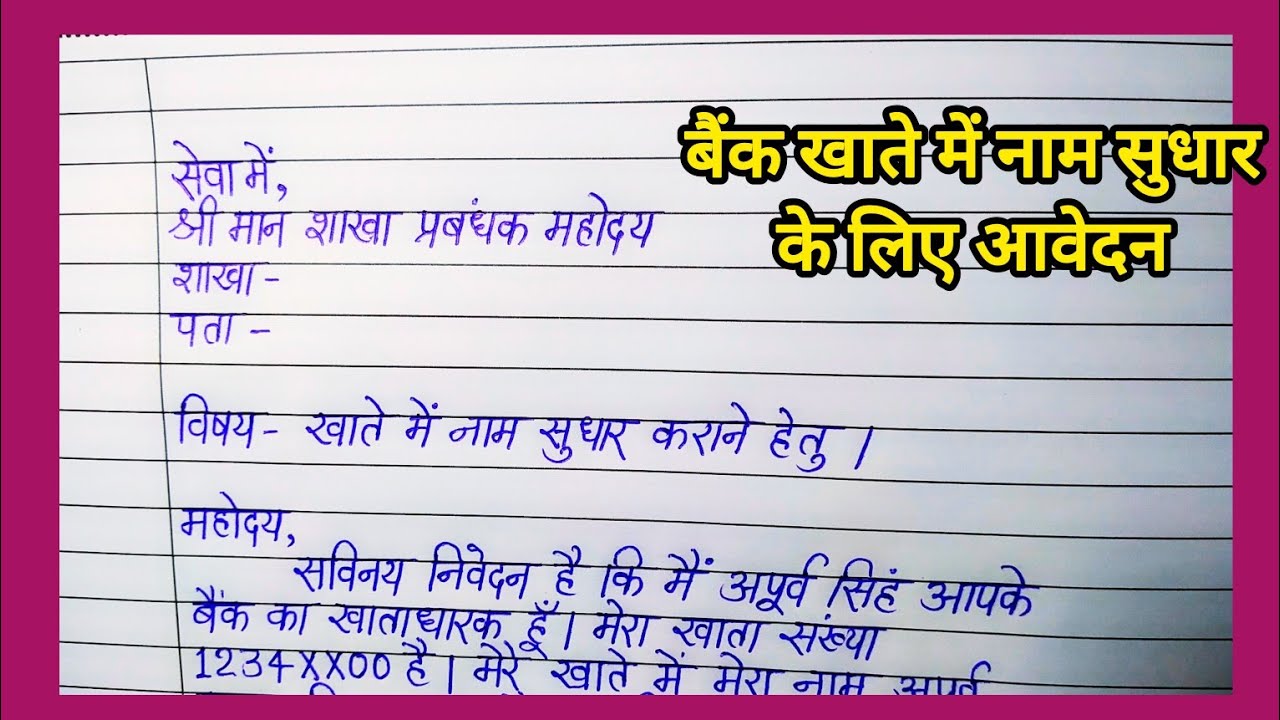 बैंक खाते में नाम सुधार
के लिए आवेदन
सेवा में,
श्री मान शाखा प्रबंधक महोदय
शाखा -
पता -
विषय - खाते में नाम सुधार कराने हेतु ।
महोदय,
सविनय निवेदन है कि मैं अपूर्व सिहं आपके
बैंक का खाताधारक हूँ। मेरा खाता सख्ंया
1234XX00 है। मेरे खाते में मेरा नाम अपूर्व